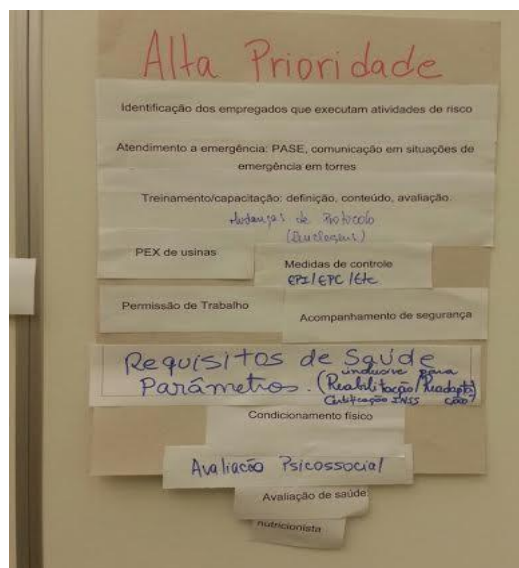 Alta Prioridade
Identificação dos empregados que executam atividades de risco
Atendimento a emergência: PASE, comunicação em situações de
emergência em torres
Treinamento/capacitação: definição, conteúdo, avaliação.
Mudanças de Protocolo
PEX de usinas
Medidas de controle
EPI/EPC/Etc
Permissão de Trabalho
Acompanhamento de segurança
Requisitos de Saúde
inclusive para
Parâmetros. (Reabilitação/Readapta
Certificação INSS ção)
Condicionamento físico
Avaliação Psicossocial
Avaliação de saúde:
nutricionista